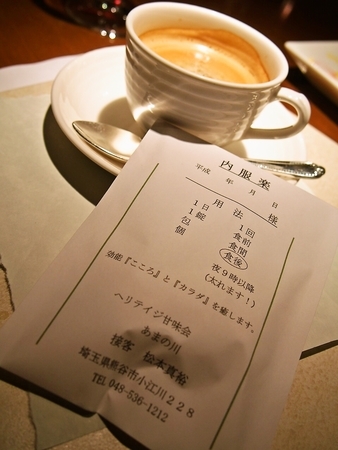 内服楽
平成　年　月　日
様
用法
1日　1回
1錠　食前
包　食間
個　食後
夜9時以降
(太れます！)
効能『こころ』と『カラダ』を癒します。
ヘリテイジ甘味会
あまの川
接客　松本真裕
埼玉県熊谷市小江川228
TEL 048-536-1212